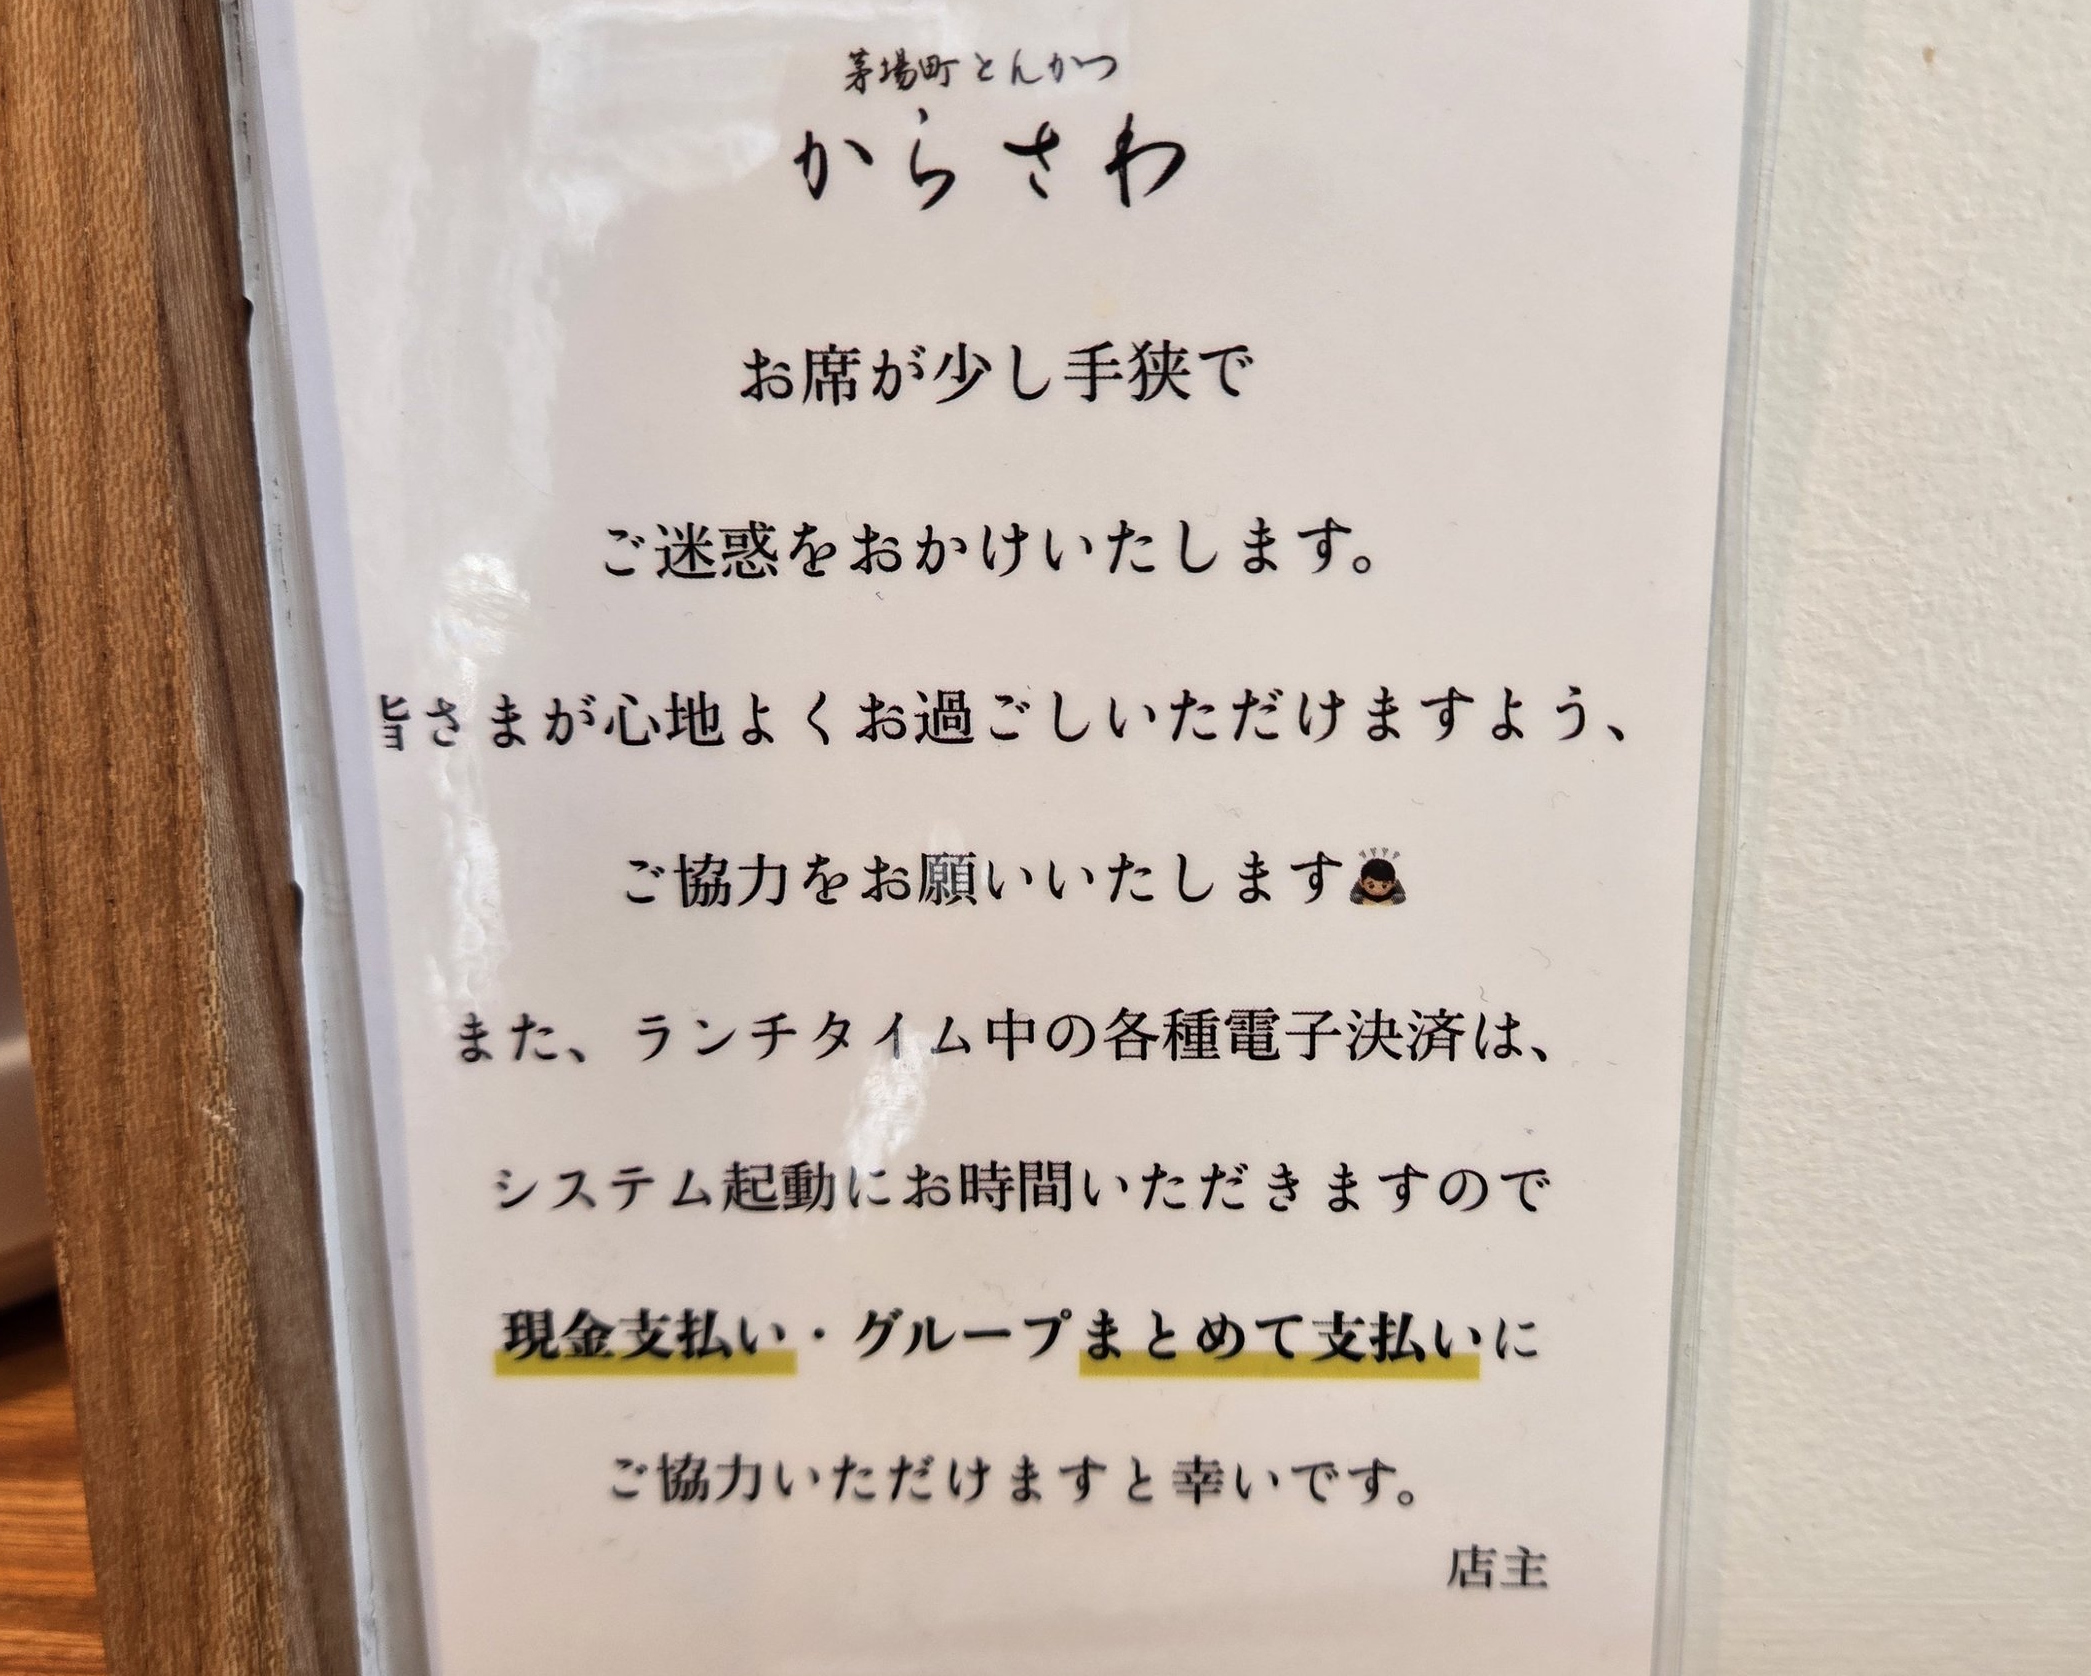 茅場町とんかつ
からさわ
お席が少し手狭で
ご迷惑をおかけいたします。
皆さまが心地よくお過ごしいただけますよう、
ご協力をお願いいたします🙇
また、ランチタイム中の各種電子決済は、
システム起動にお時間いただきますので
現金支払い・グループまとめて支払いに
ご協力いただけますと幸いです。
店主